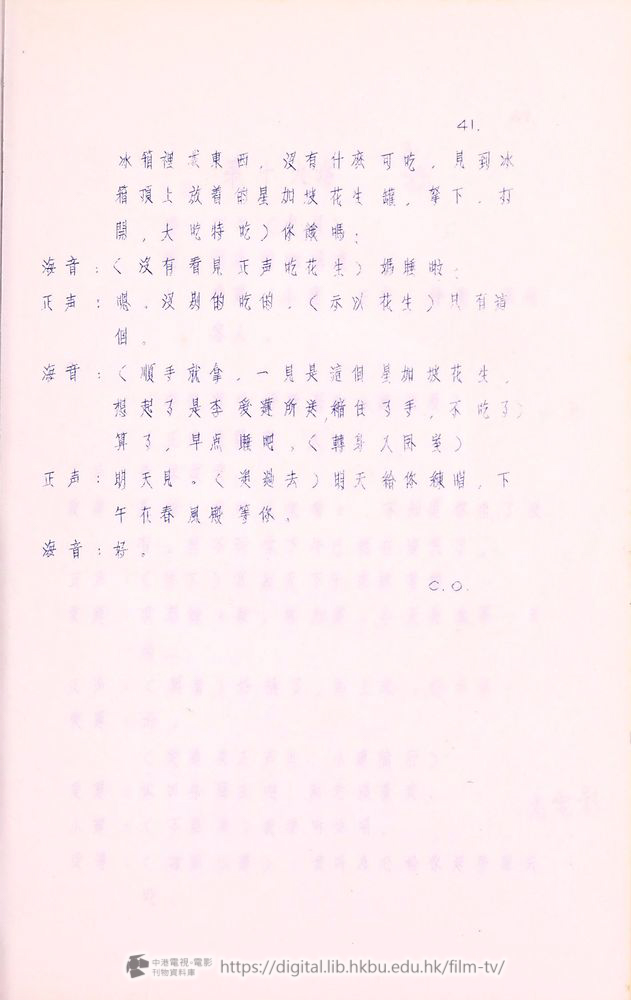 41.
冰箱裡找東西，沒有什麽可吃，見到冰
箱頂上放着的星加坡花生罐，拏下，打
開，大吃特吃）你餓嗎；
海音：（沒有看見正声吃花生）媽睡啦；
正声：嗯，沒别的吃的，（示以花生）只有這
個。
海音：（順手就拿，一見是這個星加坡花生，
想起了是李愛蓮所送，縮住了手，不吃了）
算了，早点睡吧，（轉身入卧室）
正声：明天見。（追過去）明天給你練唱，下
午在春風殿等你。
海音：好。
C.O.
中港電視·電影
刊物資料庫
https://digital.lib.hkbu.edu.hk/film-tv/